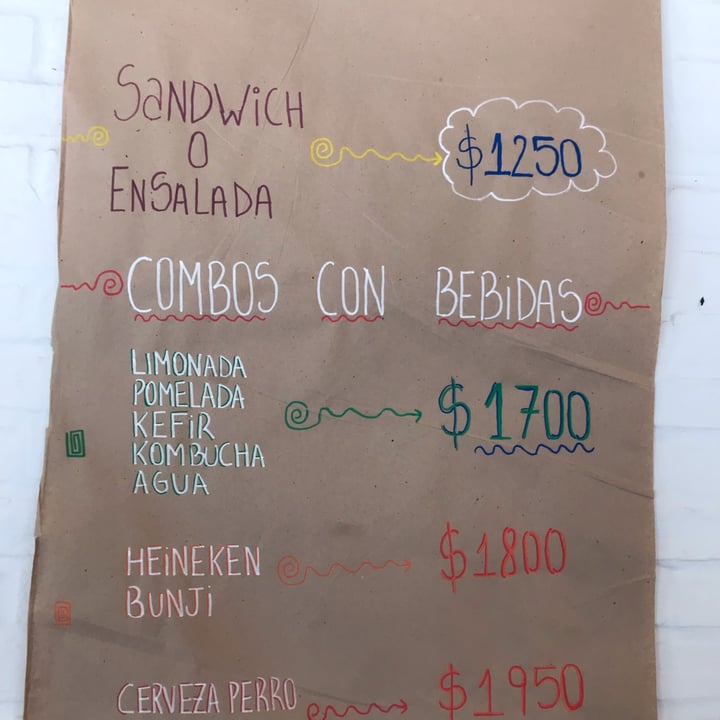 SANDWICH
O
ENSALADA
$1250
COMBOS CON BEBIDAS
LIMONADA
POMELADA
KEFIR
KOMBUCHA
AGUA
$1700
HEINEKEN
BUNJI
$1800
CERVEZA PERRO
$1950